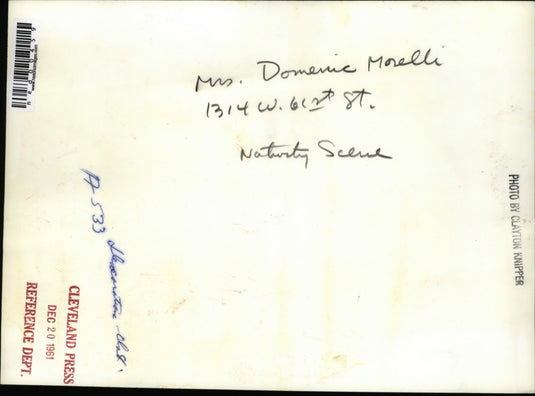 Mrs. Domenic Morelli
1314 W. 61st St.
Nativity Scene
PHOTO BY CLAYTON KNIPPER
CLEVELAND PRESS
DEC 20 1961
REFERENCE DEPT.